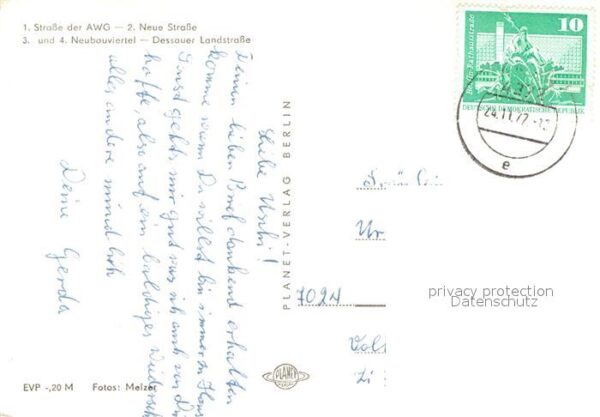 1. Straße der AWG — 2. Neue Straße
3. und 4. Neubauviertel — Dessauer Landstraße
Liebe Uschi!
Deinen lieben Brief dankend erhalten
komme wann Du willst bin immer zu Haus
Sonst geht's mir gut was ich auch von Dir
hoffe, also auf ein baldiges Wiederseh
alles andere mündlich
Deine Gerda
PLANET-VERLAG BERLIN
10
Berlin, Rathausstraße
DEUTSCHE DEMOKRATISCHE REPUBLIK
24.11.77
e
7024
privacy protection
Datenschutz
PLANET
EVP -,20 M Fotos: Melzer